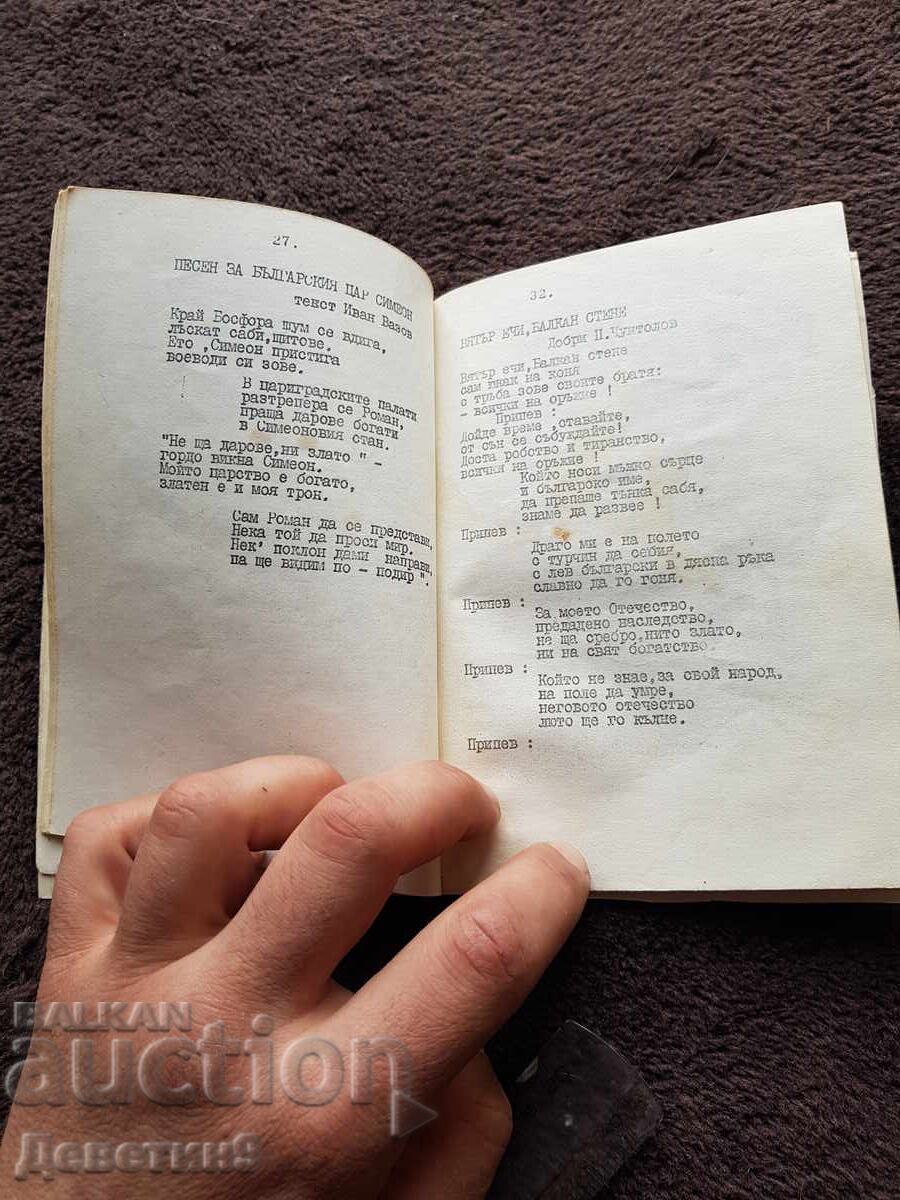 27.
ПЕСЕН ЗА БЪЛГАРСКИЯ ЦАР СИМЕОН
текст Иван Вазов
Край Босфора шум се вдига,
лъскат саби,щитове.
Ето ,Симеон пристига
воеводи си зове.
В цариградските палати
разтрепера се Роман,
праща дарове богати
в Симеоновия стан.
"Не ща дарове,ни злато " -
гордо викна Симеон.
Мойто царство е богато,
златен е и моя трон.
Сам Роман да се представи,
Нека той да проси мир.
Нек' поклон дами направи,
па ще видим по - подир ".
32.
ВЯТЪР ЕЧИ,БАЛКАН СТЕНЕ
Добри П.Чинтолов
Вятър ечи,Балкан стене
сам юнак на коня
с тръба зове своите братя:
- всички на оръжие !
Припев :
Дойде време ,ставайте,
от сън се събуждайте!
Доста робство и тиранство,
всички на оръжие !
Който носи мъжко сърце
и българско име,
да препаше тънка сабя,
знаме да развее !
Припев :
Драго ми е на полето
с турчин да се бия,
с лев български в дясна ръка
славно да го гоня.
Припев :
За моето Отечество,
предадено наследство,
не ща сребро,нито злато,
ни на свят богатство.
Припев :
Който не знае,за свой народ,
на поле да умре,
неговото отечество
люто ще го кълне.
Припев :
BALKAN
auction
Деветин9